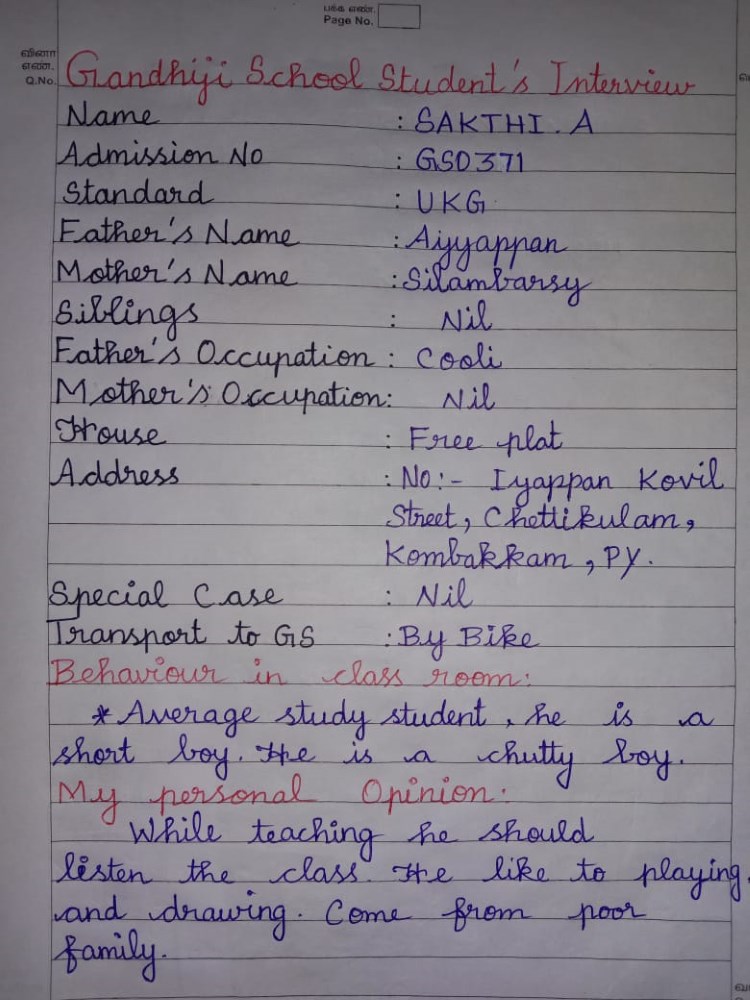 பக்க எண்.
Page No.
வினா
எண்.
Q.No.
Gandhiji School Student's Interview
Name : SAKTHI. A
Admission No : GS0371
Standard : UKG
Father's Name : Aiyyappan
Mother's Name : Silambarsy
Siblings : Nil
Father's Occupation : Cooli
Mother's Occupation: Nil
House : Free plat
Address : No:- Iyappan Kovil
Street, Chettikulam,
Kombakkam, PY.
Special Case : Nil
Transport to GS : By Bike
Behaviour in class room:
* Average study student, he is a
short boy. He is a chutty boy.
My personal Opinion:
While teaching he should
listen the class. He like to playing
and drawing. Come from poor
family.